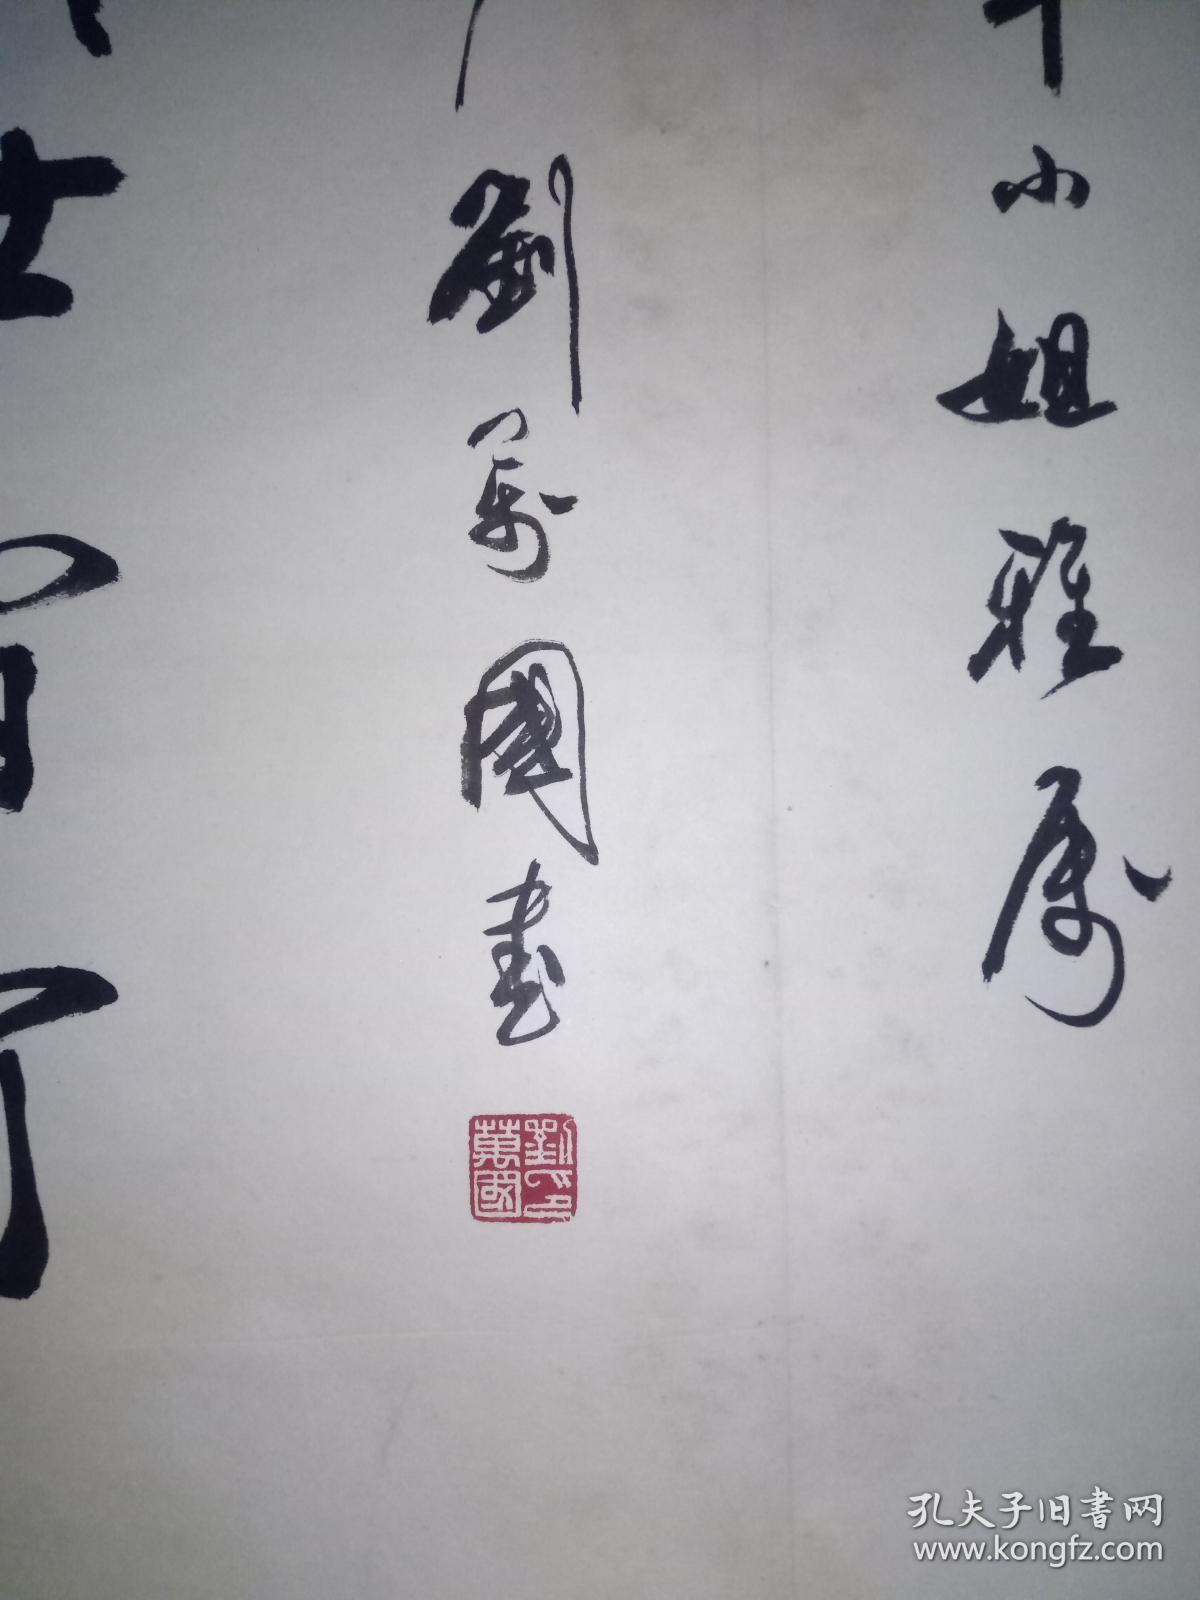 小姐雅属
劉萬國書
劉萬國印
孔夫子旧書网
www.kongfz.com